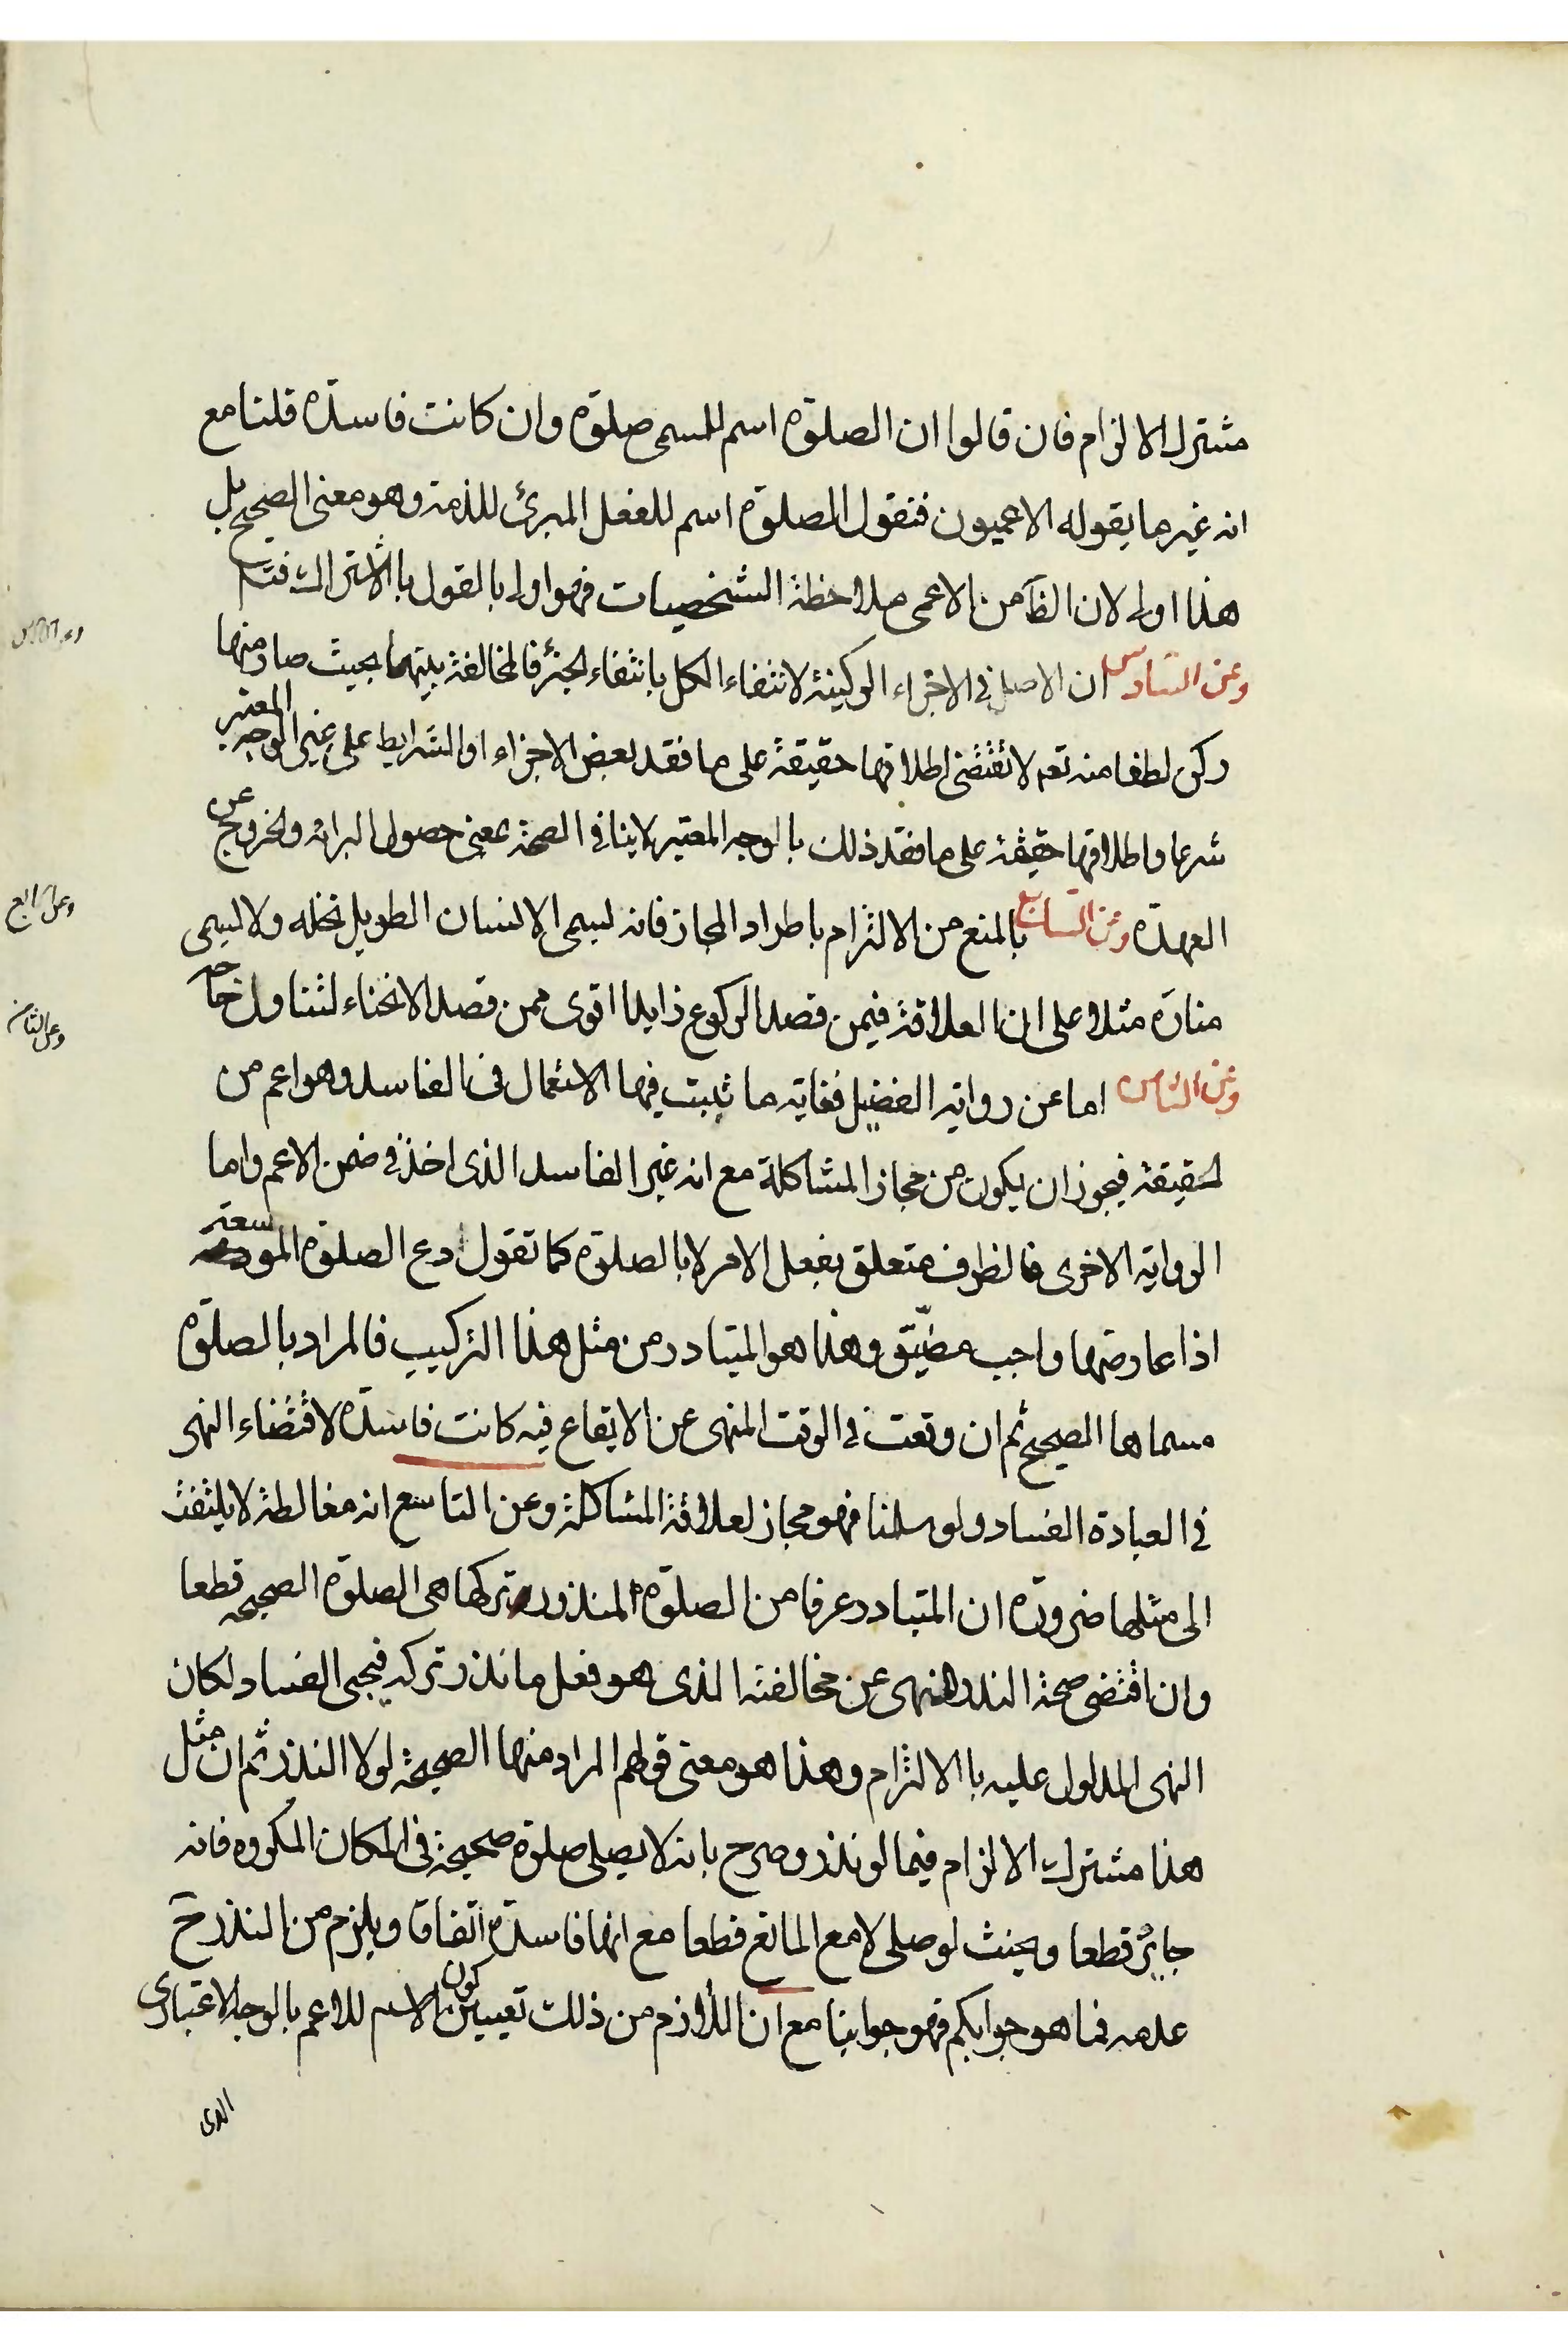 مشترك الالزام فان قالوا ان الصلوة اسم للمسمى صلوة وان كانت فاسدة قلنا مع
انه غير ما يقوله الاعميون فنقول الصلوة اسم للفعل المبرئ للذمة وهو معنى الصحيح بل
هذا اولى لان الظآ من الاعمى ملاحظة الشخصيات فهو اولى بالقول بالاشتراك فتم
وعن السادس ان الاصل في الاجزاء الركينة لانتفاء الكل بانتفاء الجزء فالمخالفة بينهما بحيث صار منها
ركن لطفا منه تعم لا تقتضى اطلاقها حقيقة على ما فقد بعض الاجزاء او الشرايط على غير الوجه المعتبر
شرعا واطلاقها حقيقة على ما فقد ذلك بالوجه المعتبر لا ينافى الصحة بمعنى حصول البرائة والخروج عن
العهدة وعن السابع بالمنع من الالتزام باطراد المجاز فانه يسمى الانسان الطويل نخلة ولا يسمى
منارة مثلا وعلى ان العلاقة فيمن قصد الركوع زايدا اقوى ممن قصد الانحناء لتناول حاجة
وعن الثامن اما عن رواية الفضيل فغاية ما ثبت فيها الاستعمال في الفاسد وهو اعم من
الحقيقة فيجوز ان يكون من مجاز المشاكلة مع انه غير الفاسد الذى اخذ في ضمن الاعم واما
الرواية الاخرى فالظرف متعلق بفعل الامر لا بالصلوة كما تقول دع الصلوة الموسعة
اذا عارضها واجب مضيّق وهذا هو المتبادر من مثل هذا التركيب فالمراد بالصلوة
مسماها الصحيح ثم ان وقعت في الوقت المنهى عن الايقاع فيه كانت فاسدة لاقتضاء النهى
في العبادة الفساد ولو سلمنا فهو مجاز لعلاقة المشاكلة وعن التاسع انه مغالطة لا يلتفت
الى مثلها ضرورة ان المتبادر عرفا من الصلوة المنذور تركها هى الصلوة الصحيحة قطعا
وان اقتضى صحة النذر النهى عن مخالفته الذى هو فعل ما نذر تركه فيجئ الفساد لكان
النهى المدلول عليه بالالتزام وهذا هو معنى قولهم المراد منها الصحيحة لولا النذر ثم ان مثل
هذا مشترك الالزام فيما لو نذر وصرح بانه لا يصلى صلوة صحيحة في المكان المكروه فانه
جايز قطعا ويحنث لو صلى لا مع المانع قطعا مع انها فاسدة اتفاقا ويلزم من النذر ح
عدمه فما هو جوابكم فهو جوابنا مع ان اللازم من ذلك تعيين كون الاسم للاعم بالوجه الاعتبارى
الذى
وعن السابع
وعن الثامن